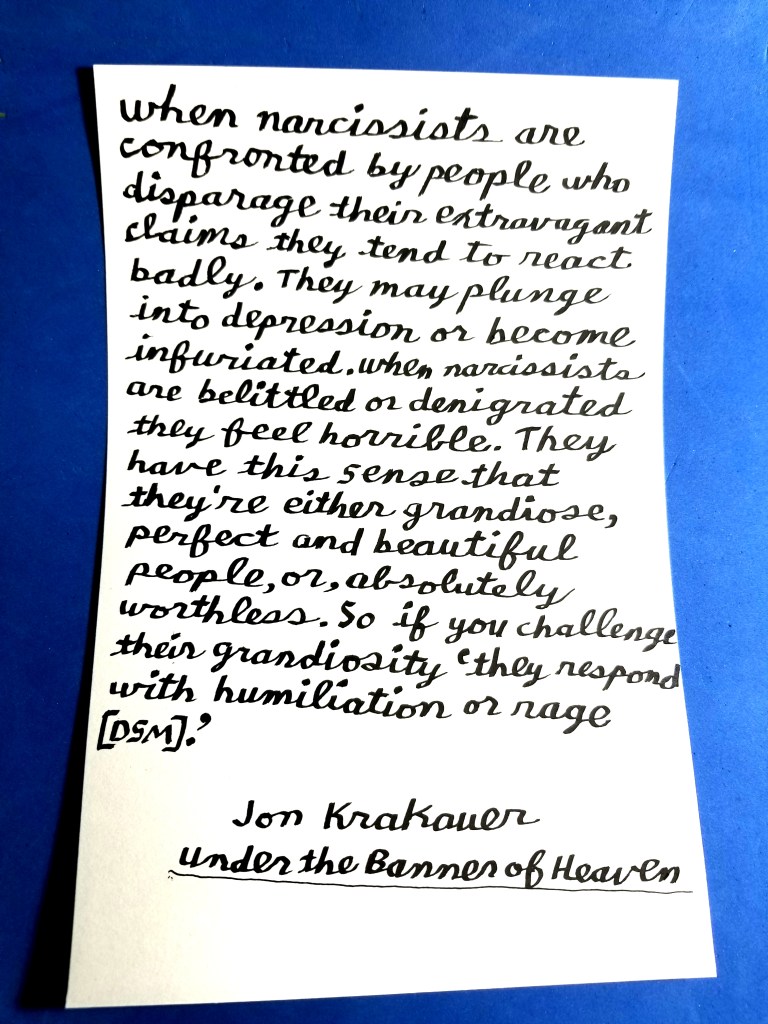 when narcissists are
confronted by people who
disparage their extravagant
claims they tend to react
badly. They may plunge
into depression or become
infuriated. when narcissists
are belittled or denigrated
they feel horrible. They
have this sense that
they're either grandiose,
perfect and beautiful
people, or, absolutely
worthless. So if you challenge
their grandiosity 'they respond
with humiliation or rage
[DSM].'
Jon Krakauer
under the Banner of Heaven